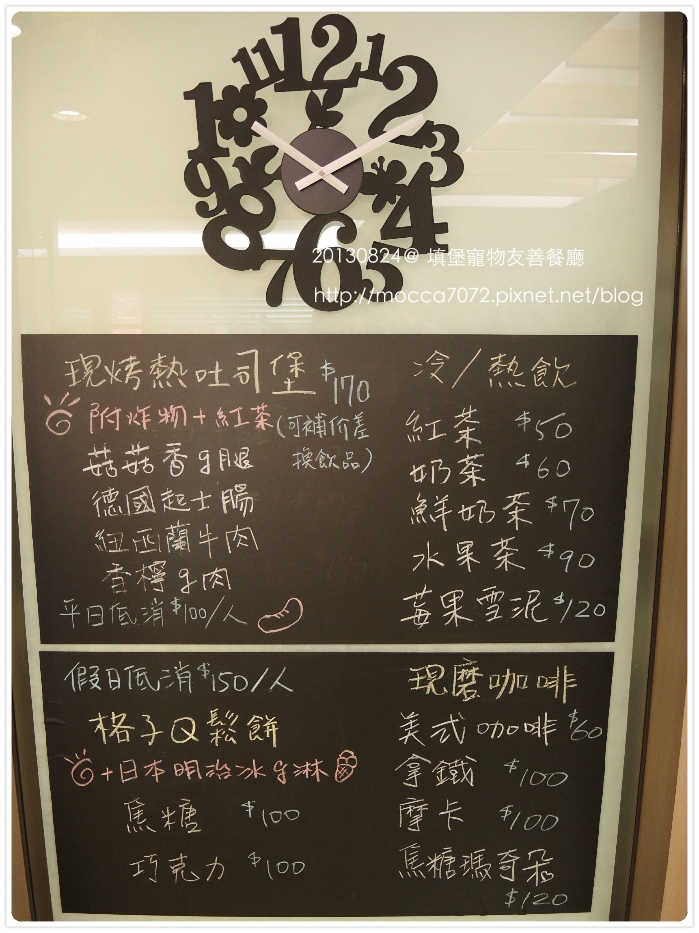 12
1
2
3
4
5
6
7
8
9
10
11
20130824@ 填堡寵物友善餐廳
http://mocca7072.pixnet.net/blog
現烤熱吐司堡 $170
附炸物+紅茶(可補价差
換飲品)
菇菇香ㄐ腿
德國起士腸
紐西蘭牛肉
香檸ㄐ肉
平日低消$100/人
冷/熱飲
紅茶 $50
奶茶 $60
鮮奶茶 $70
水果茶 $90
莓果雪泥 $120
假日低消$150/人
格子Q鬆餅
+日本明治冰ㄑ淋
焦糖 $100
巧克力 $100
現磨咖啡
美式咖啡 $60
拿鐵 $100
摩卡 $100
焦糖瑪奇朵
$120